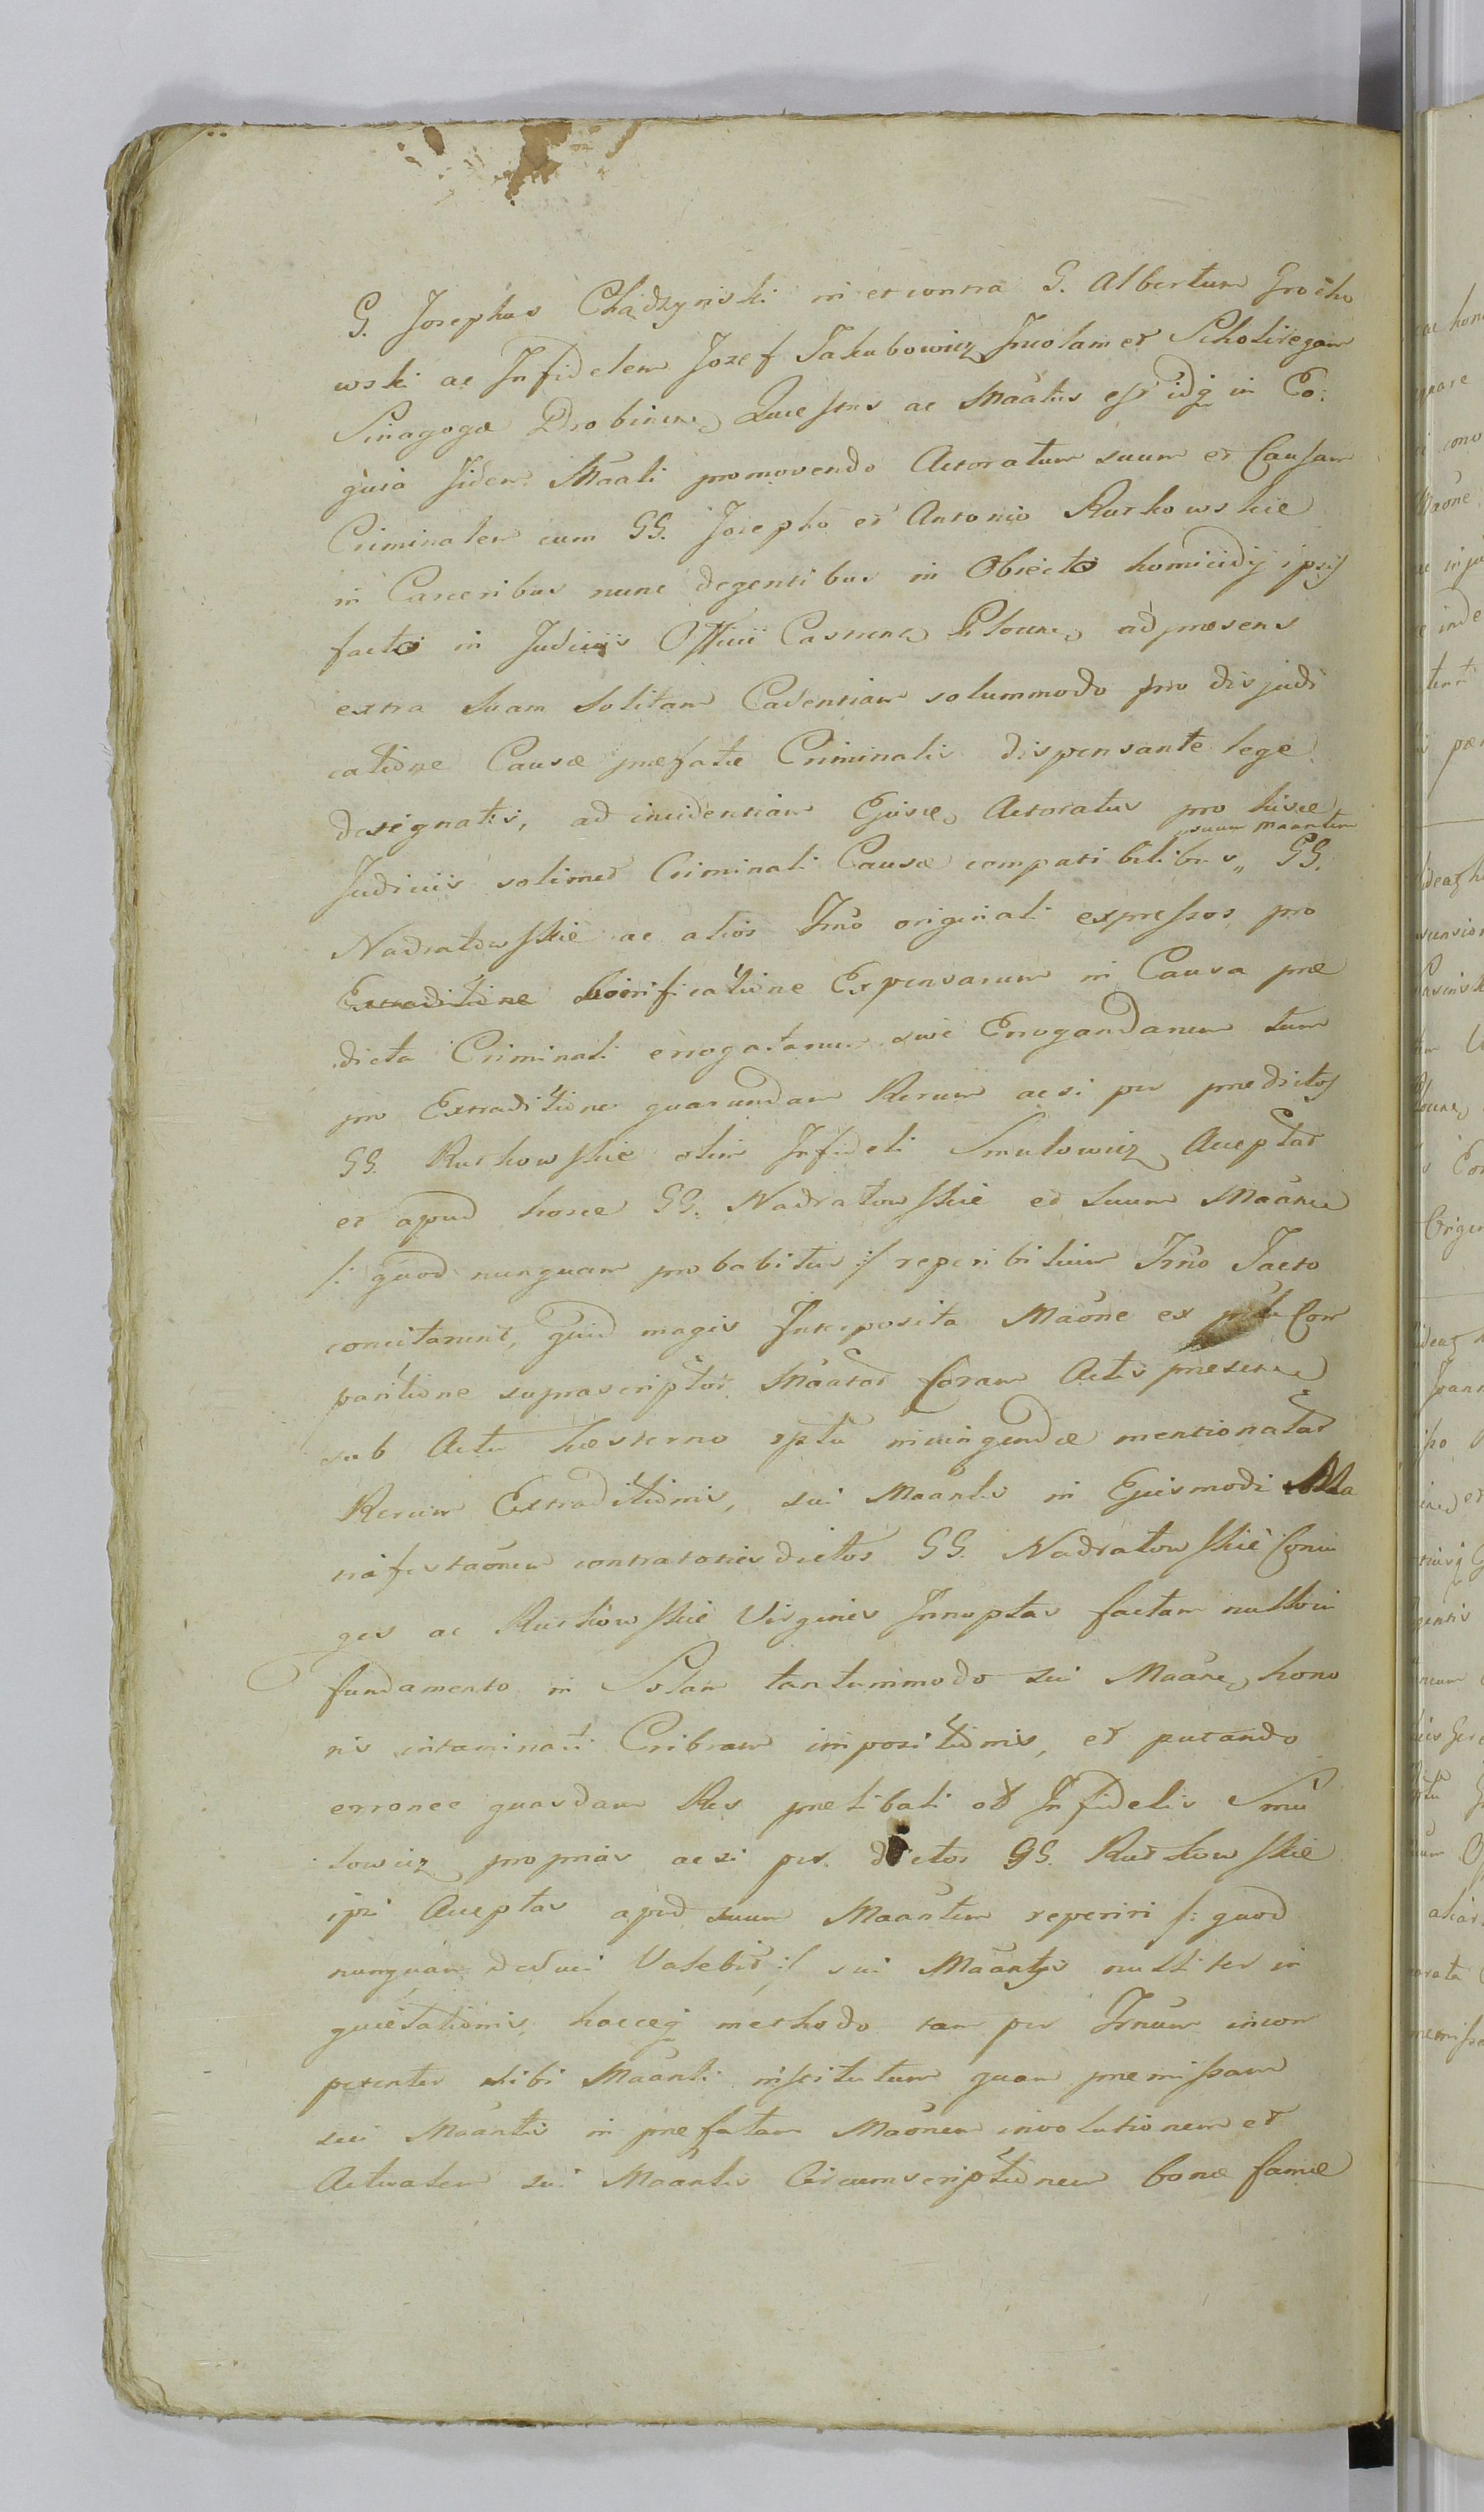 G. Josephus Chądzyński in et contra G. Albertum Grocho
wski ac Infidelem Jozef Jakubowicz Incolam et Scholiregam
Sinagogæ Drobinen, Questus ac Maatus est idq in Eo:
quia Jidem Maati promovendo Actoratum suum et Causam
Criminalem cum GG. Josepho et Antonio Rutkowskie
in Carceribus nunc degentibus in Obiecto homicidij ipsis
facto in Judicijs Officii Castren, Plocen, ad præsens
extra suam solitam Cadentiam solummodo pro disjudi
catione Causæ præfatæ Criminalis dispensante lege
designatis, ad incidentiam Ejusce, Actoratus pro hisce
Judiciis solimet Criminali Causæ compatibilibus,, GG.
suum Maantem
Nadratowskie ac alios Trno originali expressos pro
Extraditione bonificatione Expensarum in Causa præ
dicta Criminali erogatarum sive Erogandarum tum
pro Extraditione quarundam Rerum acsi per prædictos
GG. Rutkowskie olim Infideli Smulowicz Acceptar
et apud hosce GG. Nadratowskie et suum Maante
/: quod nunquam probabitur :/ reperibilium Trno Facto
concitarunt, quid magis Interposita Maone ex Com
paritione suprascriptor Maator Coram Actis præsen
sub Actu hæsterno iniungendæ mentionatar
Rerum Extraditionis, sui Maantis in Ejusmodi Ma
nifestaonem contra toties dictos GG. Nadratowskie Coniu
ges ac Rutkowskie Virgines Innuptas factam nullo in
fundamento in Solam tantummodo sui Maante, hono
ris intaminati Cribram impositionis, et putando
erronee quasdam Res prælibati ol Infidelis Smu
lowicz proprias acsi per dictos GG. Rutkowskie
ipsi Acceptas apud suum Maantem reperiri /: quod
nunquam deduci Valebit :/ sui Maantis nulliter in
quietationis, hocceq methodo tam per Trnum incom
petenter sibi Maanti institutum quam præmissam
sui Maantis in præfatam Maonem involutionem et
Actualem sui Maantis Circumscriptionem bonæ famæ